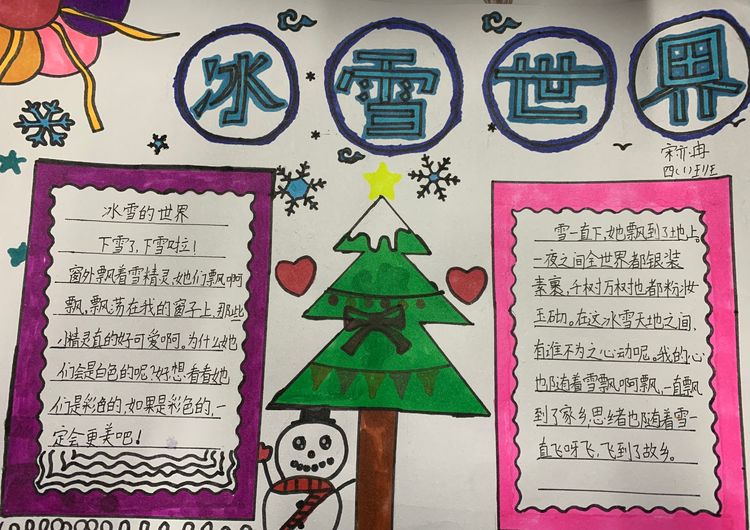 冰雪世界
宋亦冉
四(1)班
冰雪的世界
下雪了,下雪啦!
窗外飘着雪精灵,她们飘啊
飘,飘荡在我的窗子上,那些
小精灵真的好可爱啊。为什么她
们会是白色的呢?好想看看她
们是彩色的,如果是彩色的,一
定会更美吧!
雪一直下,她飘到了地上。
一夜之间全世界都银装
素裹,千树万树也都粉妆
玉砌。在这冰雪天地之间,
有谁不为之心动呢。我的心
也随着雪飘啊飘,一直飘
到了家乡,思绪也随着雪一
直飞呀飞,飞到了故乡。